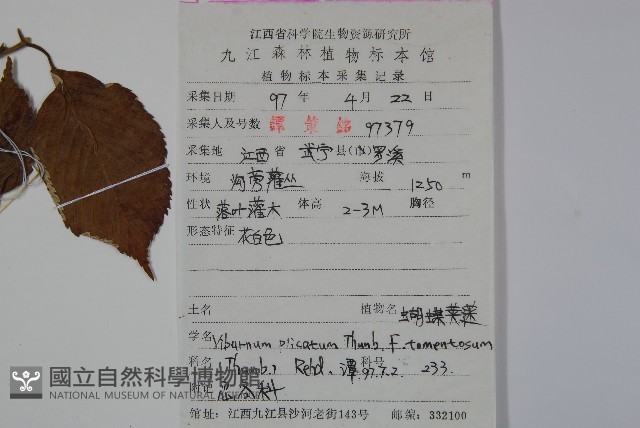 江西省科学院生物资源研究所
九江森林植物标本馆
植物标本采集记录
采集日期 97 年 4 月 22 日
采集人及号数 譚策銘 97379
采集地 江西 省 武宁 县(市) 罗溪
环境 沟旁灌丛 海拔 1250 m
性状 落叶灌木 体高 2-3M 胸径
形态特征 花白色
土名 植物名 蝴蝶荚蒾
学名 Viburnum plicatum Thunb. F. tomentosum
科名 (Thunb.) Rehd. 譚.97.7.2. 科号 233.
附记 忍冬科
國立自然科學博物館
NATIONAL MUSEUM OF NATURAL
馆址：江西九江县沙河老街143号 邮编：332100